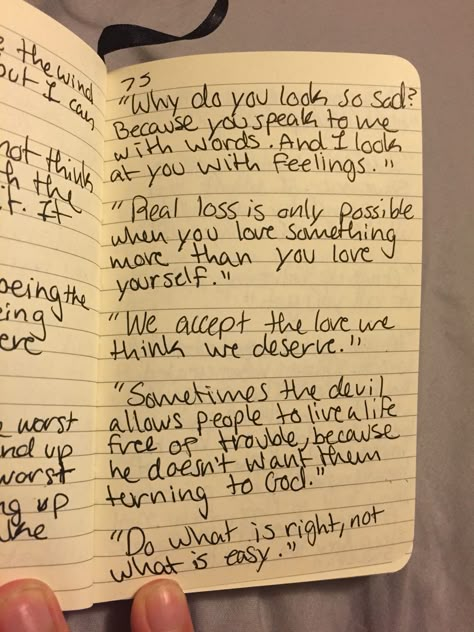 e the wind
out I can
not think
h the
t. It
being the
eing
ere
e worst
nd up
worst
ng up
the
75
"Why do you look so sad?
Because you speak to me
with words. And I look
at you with feelings."
"Real loss is only possible
when you love something
more than you love
yourself."
"We accept the love we
think we deserve."
"Sometimes the devil
allows people to live a life
free of trouble, because
he doesn't want them
turning to God."
"Do what is right, not
what is easy."